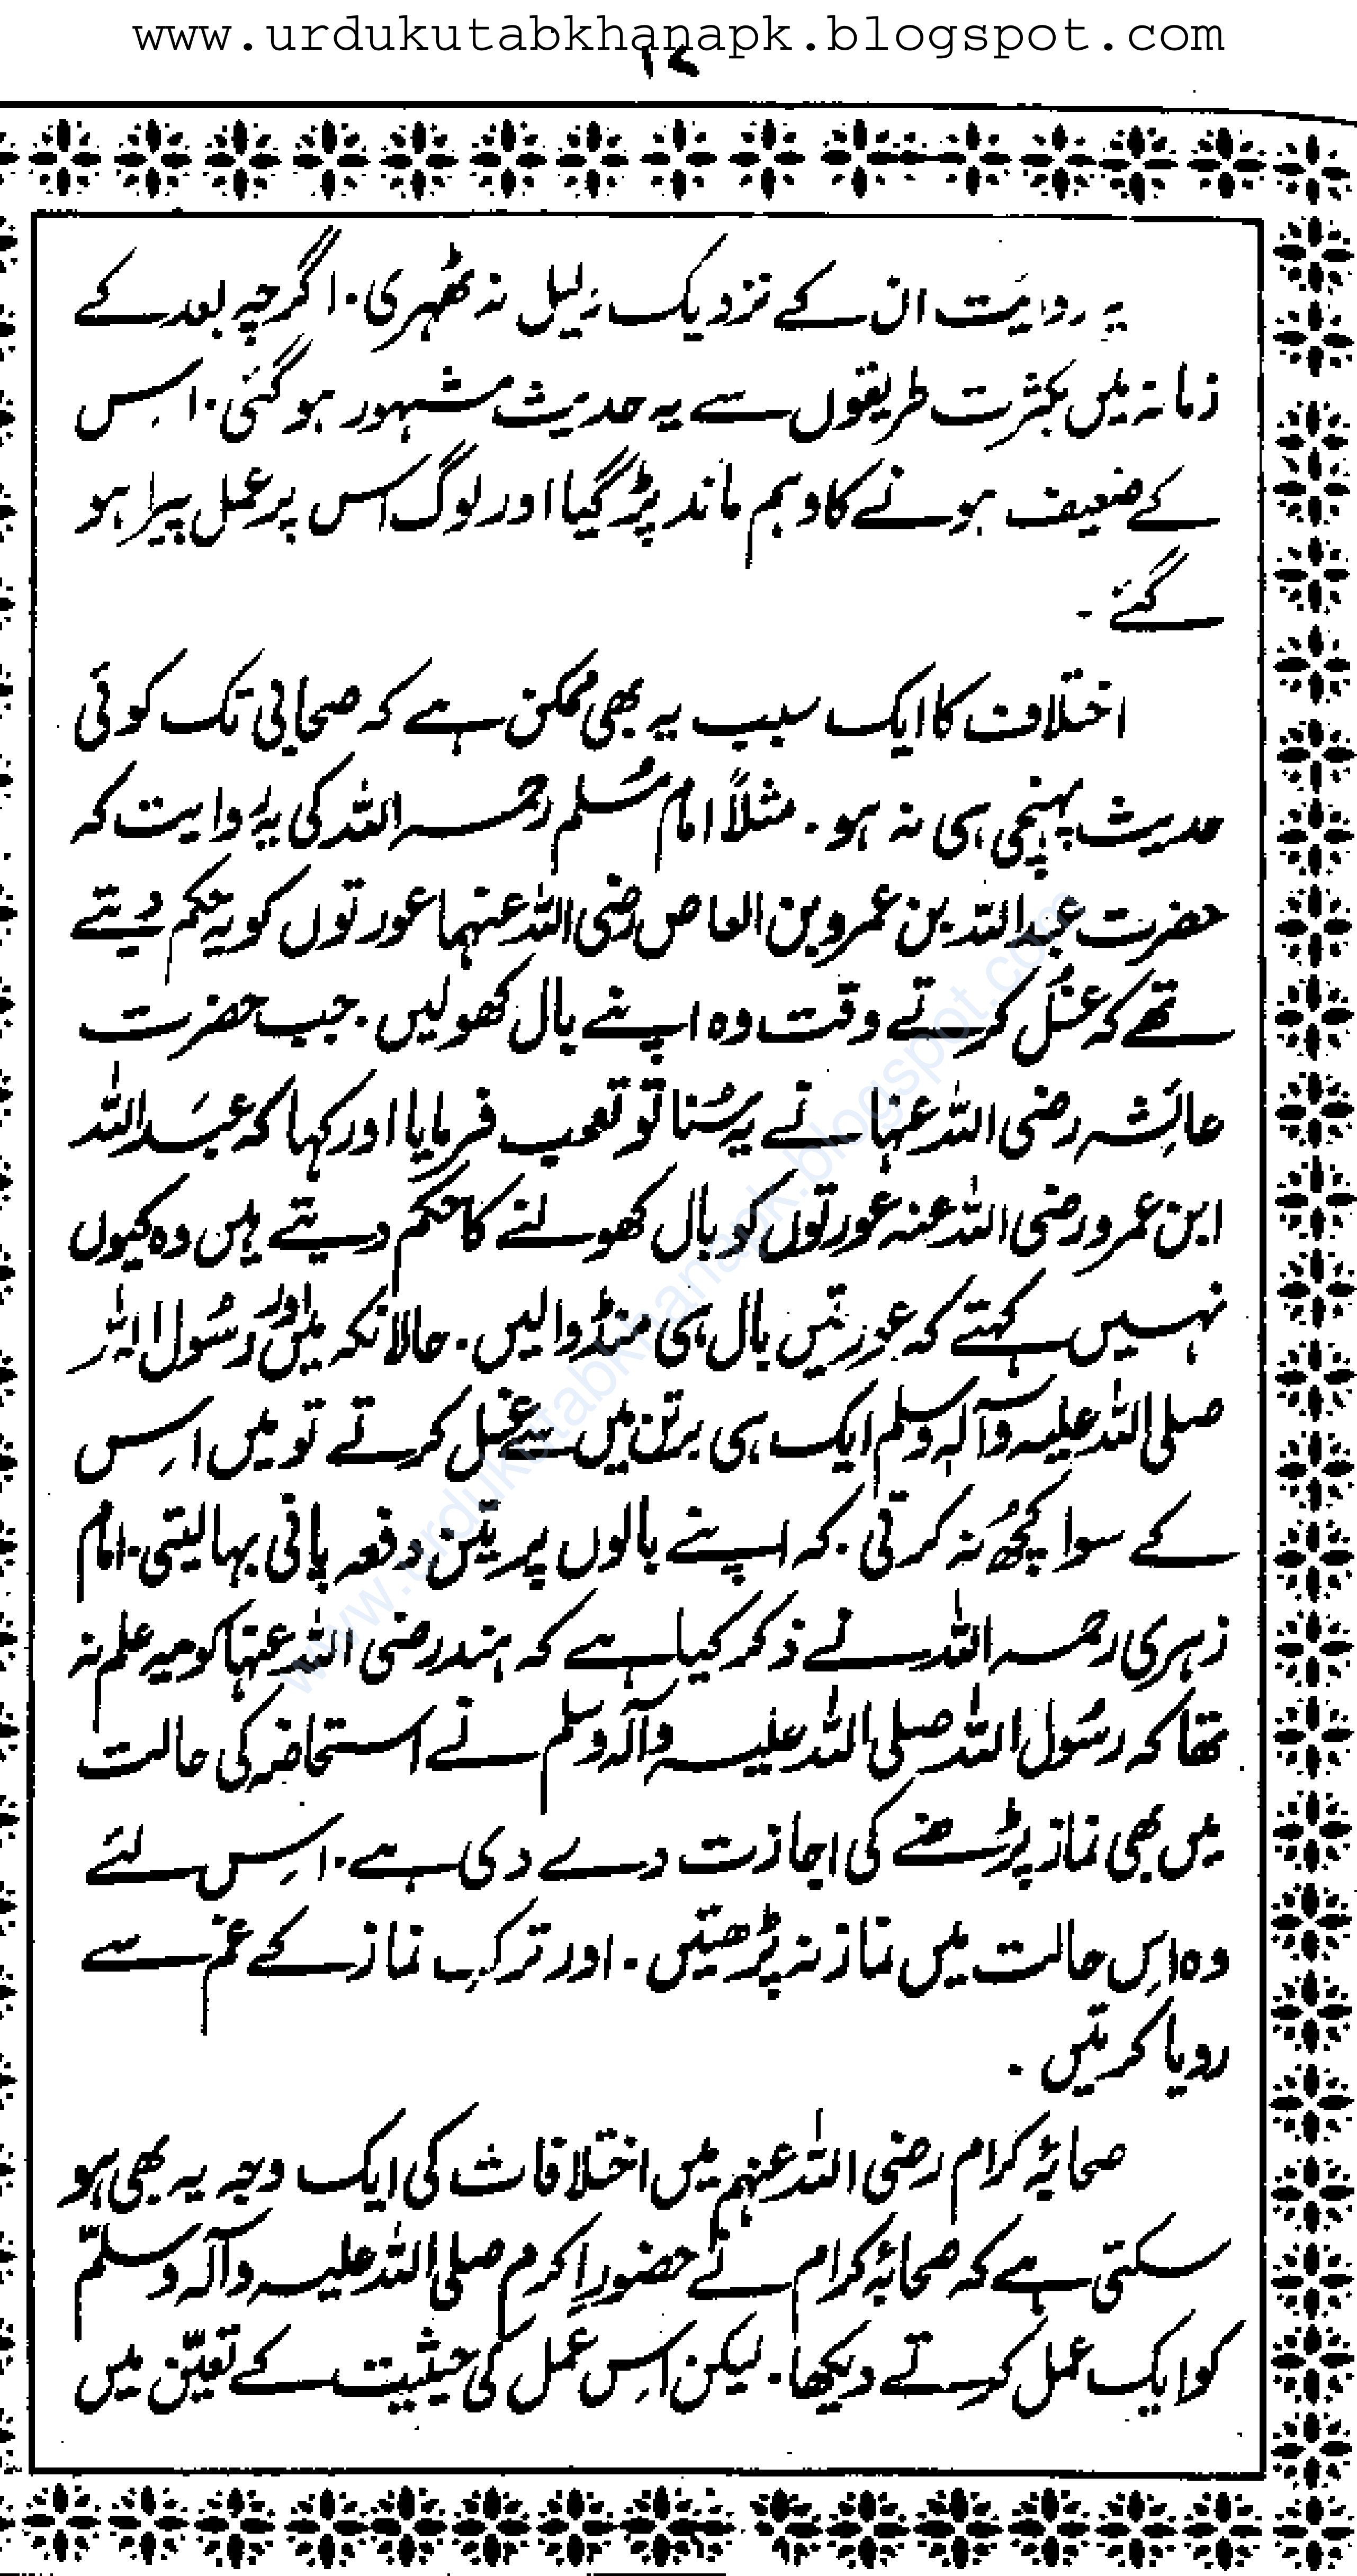 www.urdukutabkhanapk.blogspot.com
۱۷
یہ روایت ان کے نزدیک دلیل نہ ٹھہری. اگرچہ بعد کے
زمانہ میں بکثرت طریقوں سے یہ حدیث مشہور ہوگئی. اس
کے ضعیف ہونے کا وہم ماند پڑ گیا اور لوگ اس پر عمل پیرا ہو
گئے.
اختلاف کا ایک سبب یہ بھی ممکن ہے کہ صحابی تک کوئی
حدیث پہنچی ہی نہ ہو. مثلاً امام مُسلم رحمہ اللہ کی یہ روایت کہ
حضرت عبداللہ بن عمرو بن العاص رضی اللہ عنہما عورتوں کو یہ حکم دیتے
تھے کہ غسُل کرتے وقت وہ اپنے بال کھولیں. جب حضرت
عائشہ رضی اللہ عنہا نے یہ سُنا تو تعجب فرمایا اور کہا کہ عبداللہ
ابن عمرو رضی اللہ عنہ عورتوں کو بال کھولنے کا حکم دیتے ہیں وہ کیوں
نہیں کہتے کہ عورتیں بال ہی منڈوا لیں. حالانکہ میں اور رسُول اللہ
صلی اللہ علیہ وآلہ وسلم ایک ہی برتن میں سے غسل کرتے تو میں اس
کے سوا کچھُ نہ کرتی. کہ اپنے بالوں پر تین دفعہ پانی بہا لیتی. امام
زہری رحمہ اللہ نے ذکر کیا ہے کہ ہند رضی اللہ عنہا کو یہ علم نہ
تھا کہ رسُول اللہ صلی اللہ علیہ وآلہ وسلم نے استحاضہ کی حالت
میں بھی نماز پڑھنے کی اجازت دے دی ہے. اس لئے
وہ اس حالت میں نماز نہ پڑھتیں. اور ترکِ نماز کے غم سے
رویا کرتیں.
صحابۂ کرام رضی اللہ عنہم میں اختلافات کی ایک وجہ یہ بھی ہو
سکتی ہے کہ صحابۂ کرام نے حضورِ اکرم صلی اللہ علیہ وآلہ وسلّم
کو ایک عمل کرتے دیکھا. لیکن اس عمل کی حیثیت کے تعیّن میں
www.urdukutabkhanapk.blogspot.com